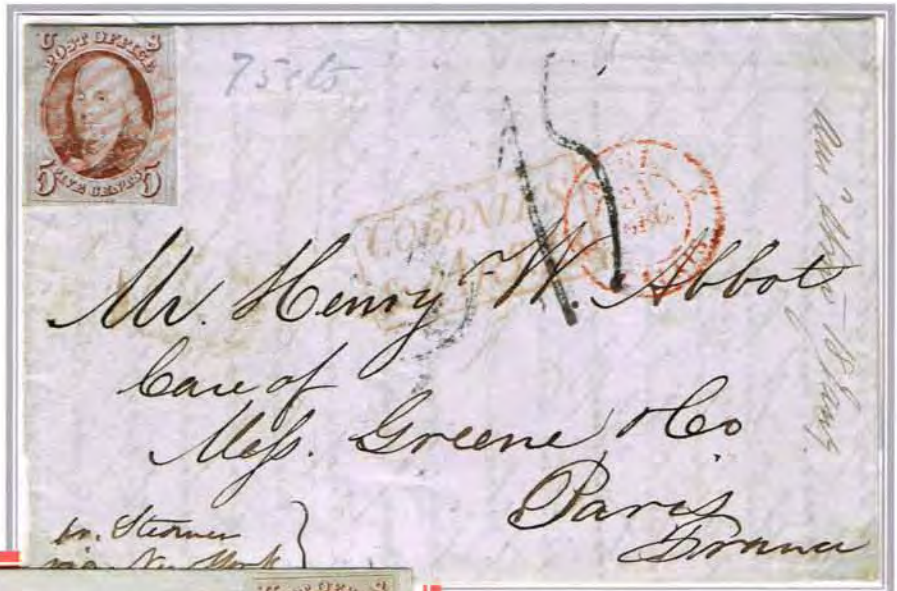 U S
POST OFFICE
5 FIVE CENTS 5
75 cts
15
COLONIES
Mr. Henry W. Abbot
Care of
Mess. Greene & Co
Paris
France
pr. Steamer
via New York